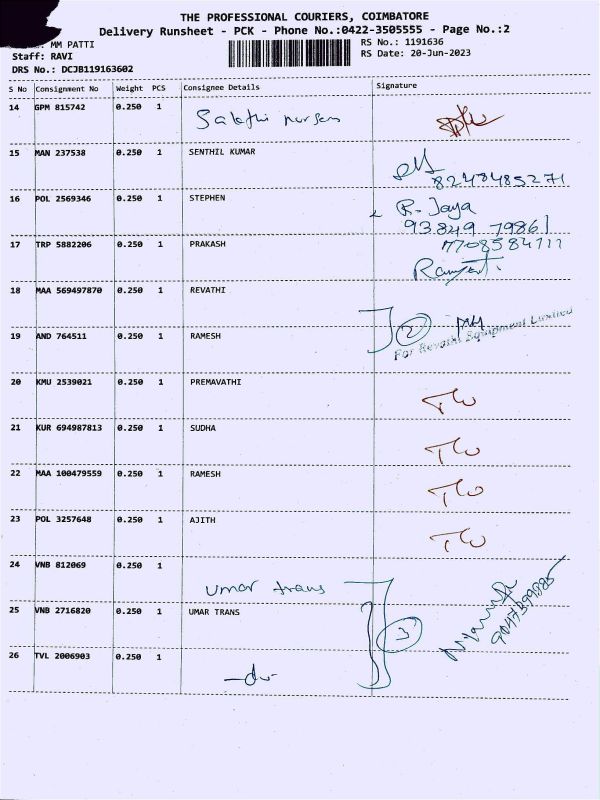 THE PROFESSIONAL COURIERS, COIMBATORE
Delivery Runsheet - PCK - Phone No.:0422-3505555 - Page No.:2
MM PATTI
RS No.: 1191636
Staff: RAVI
RS Date: 20-Jun-2023
DRS No.: DCJB119163602
S No Consignment No Weight PCS Consignee Details Signature
14 GPM 815742 0.250 1
15 MAN 237538 0.250 1 SENTHIL KUMAR
8248485271
16 POL 2569346 0.250 1 STEPHEN R. Jaya
93849 79861
17 TRP 5882206 0.250 1 PRAKASH 7708584711
18 MAA 569497870 0.250 1 REVATHI
For Revathi Equipment Limited
19 AND 764511 0.250 1 RAMESH
20 KMU 2539021 0.250 1 PREMAVATHI
21 KUR 694987813 0.250 1 SUDHA
22 MAA 100479559 0.250 1 RAMESH
23 POL 3257648 0.250 1 AJITH
24 VNB 812069 0.250 1 umar trans
25 VNB 2716820 0.250 1 UMAR TRANS 3
26 TVL 2006903 0.250 1 -do-